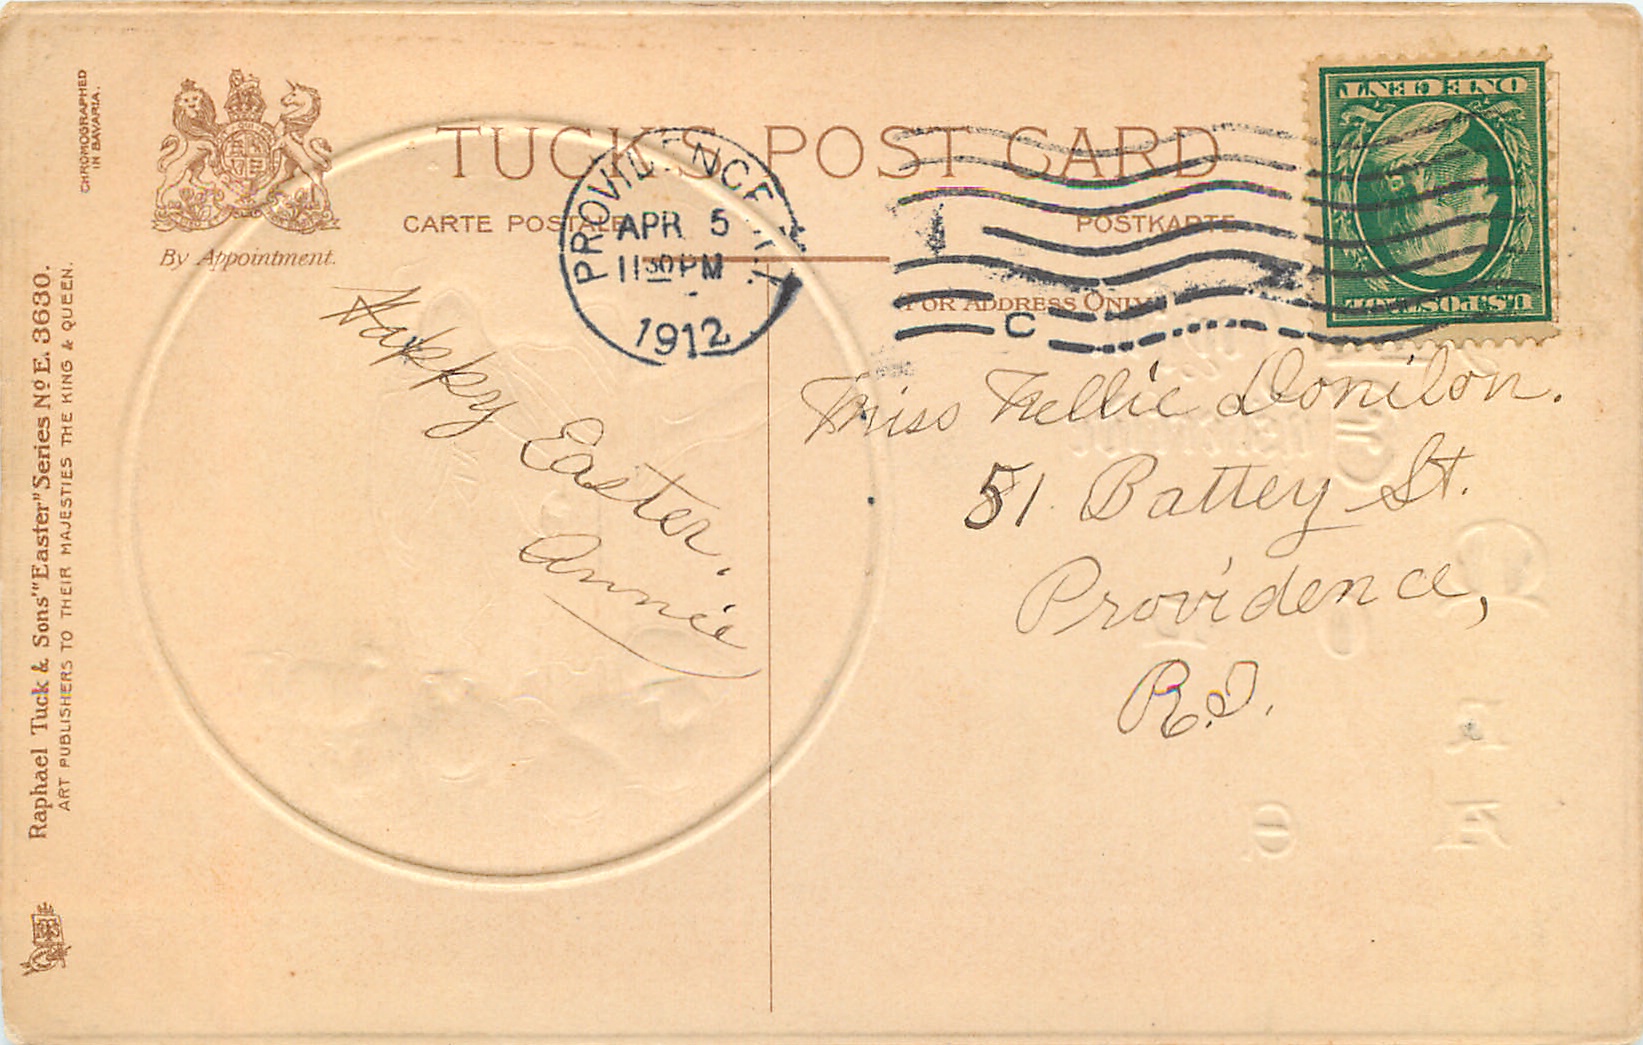 CHROMOGRAPHED
IN BAVARIA.
Raphael Tuck & Sons' "Easter" Series Nº E. 3630.
ART PUBLISHERS TO THEIR MAJESTIES THE KING & QUEEN.
By Appointment.
TUCK'S POST CARD
CARTE POSTALE
POSTKARTE
FOR ADDRESS ONLY
PROVIDENCE R.I.
APR 5
11 30 PM
1912
C
U.S. POSTAGE
ONE CENT
Happy Easter.
Annie
Miss Nellie Donilon.
51 Battey St.
Providence,
R.I.